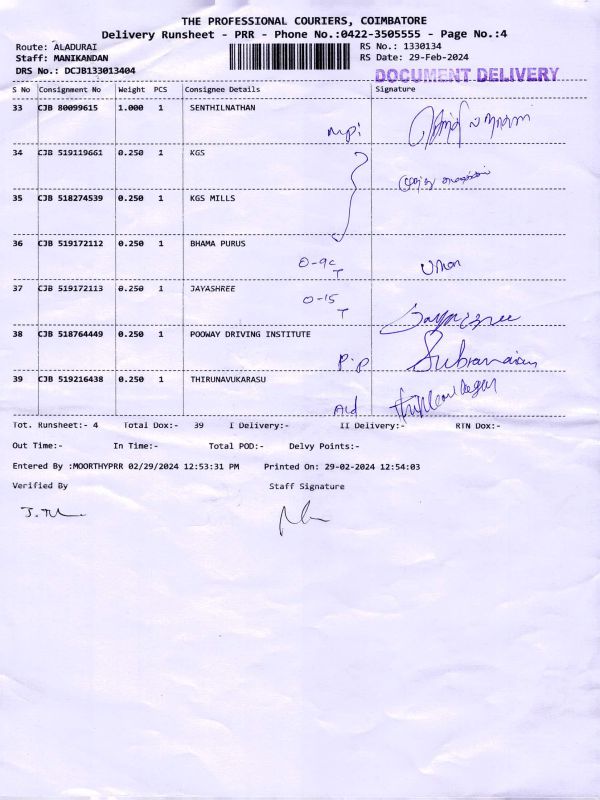 THE PROFESSIONAL COURIERS, COIMBATORE
Delivery Runsheet - PRR - Phone No.:0422-3505555 - Page No.:4
Route: ALADURAI RS No.: 1330134
Staff: MANIKANDAN RS Date: 29-Feb-2024
DRS No.: DCJB133013404 DOCUMENT DELIVERY
S No Consignment No Weight PCS Consignee Details Signature
33 CJB 80099615 1.000 1 SENTHILNATHAN
34 CJB 519119661 0.250 1 KGS
35 CJB 518274539 0.250 1 KGS MILLS
36 CJB 519172112 0.250 1 BHAMA PURUS
37 CJB 519172113 0.250 1 JAYASHREE
O-15
T
38 CJB 518764449 0.250 1 POOWAY DRIVING INSTITUTE
P.P
39 CJB 519216438 0.250 1 THIRUNAVUKARASU
Tot. Runsheet:- 4 Total Dox:- 39 I Delivery:- II Delivery:- RTN Dox:-
Out Time:- In Time:- Total POD:- Delvy Points:-
Entered By :MOORTHYPRR 02/29/2024 12:53:31 PM Printed On: 29-02-2024 12:54:03
Verified By Staff Signature